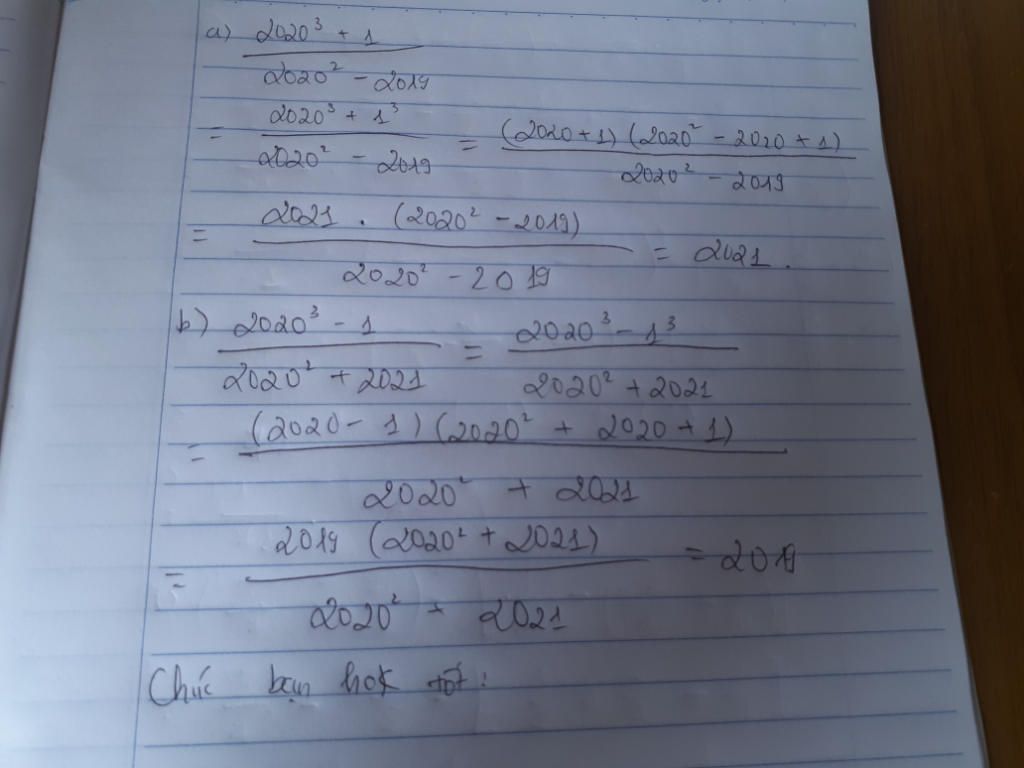 a) (2020³ + 1) / (2020² - 2019)
= (2020³ + 1³) / (2020² - 2019) = (2020 + 1) (2020² - 2020 + 1) / (2020² - 2019)
= 2021 . (2020² - 2019) / (2020² - 2019) = 2021.
b) (2020³ - 1) / (2020² + 2021) = (2020³ - 1³) / (2020² + 2021)
= (2020 - 1) (2020² + 2020 + 1) / (2020² + 2021)
= 2019 (2020² + 2021) / (2020² + 2021) = 2019
Chúc bạn hok tốt!